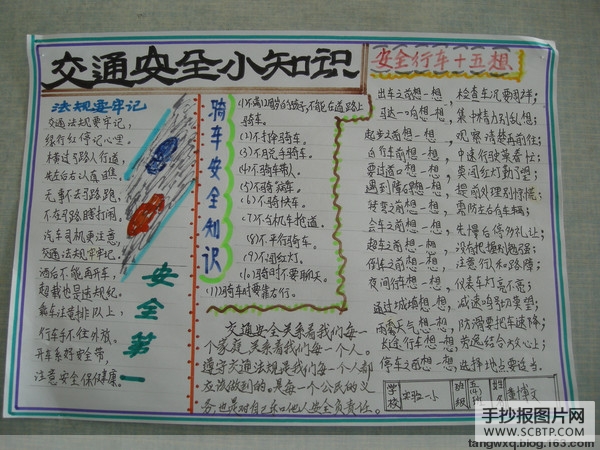 交通安全小知识
法规要牢记
交通法规要牢记,
绿行红停记心里
横过马路人行道,
先左后右认真瞧。
无事不去马路跑,
不在马路瞎打闹。
汽车司机更注意,
交通法规牢牢记。
酒后不能再开车,
超载也是违规纪。
乘车注意排队上,
行车手不往外放。
开车系好安全带,
注意安全保健康。
安全第一
骑车安全知识
骑车。
(2)不打伞骑车。
(3)不脱手骑车。
(4)不骑车带人。
(5)不骑
(6)不骑快车。
(7)不与机车抢道。
(8)不平行骑车。
(9)不闯红灯。
(10)骑车时不要聊天。
(11)骑车时要靠右行。
交通安全关系着我们每一
个家庭,关系着我们每一个人。
遵守交通法规是我们每一个人都
应该做到的。是每一个公民的义
务也是对自己和他人安全负责任。
安全行车十五想
出车之前想一想,检查车况要周详;
马达一响想一想,集中精力别乱想;
起步之前想一想,观察清楚再前往;
自行车前想一想,中速行驶莫着忙;
要过道口想一想,莫闯红灯勤了望;
遇到障碍想一想,提前处理别惊慌;
转弯之前想一想,需防左右有车辆;
会车之前想一想,先慢后停多礼让;
超车之前想一想,没有把握别勉强;
倒车之前想一想,注意行人和路障;
夜间行车想一想,仪表车灯亮不亮;
通过城镇想一想,减速鸣号切莫望;
雨雾天气想一想,防滑要把车速降;
长途行车想一想,劳逸结合放心上;
停车之前想一想,选择地点要适当。
学校
实验一小
班级
姓名
手抄报图片网
WWW.SCBTP.COM
tangwxq.blog.163.com